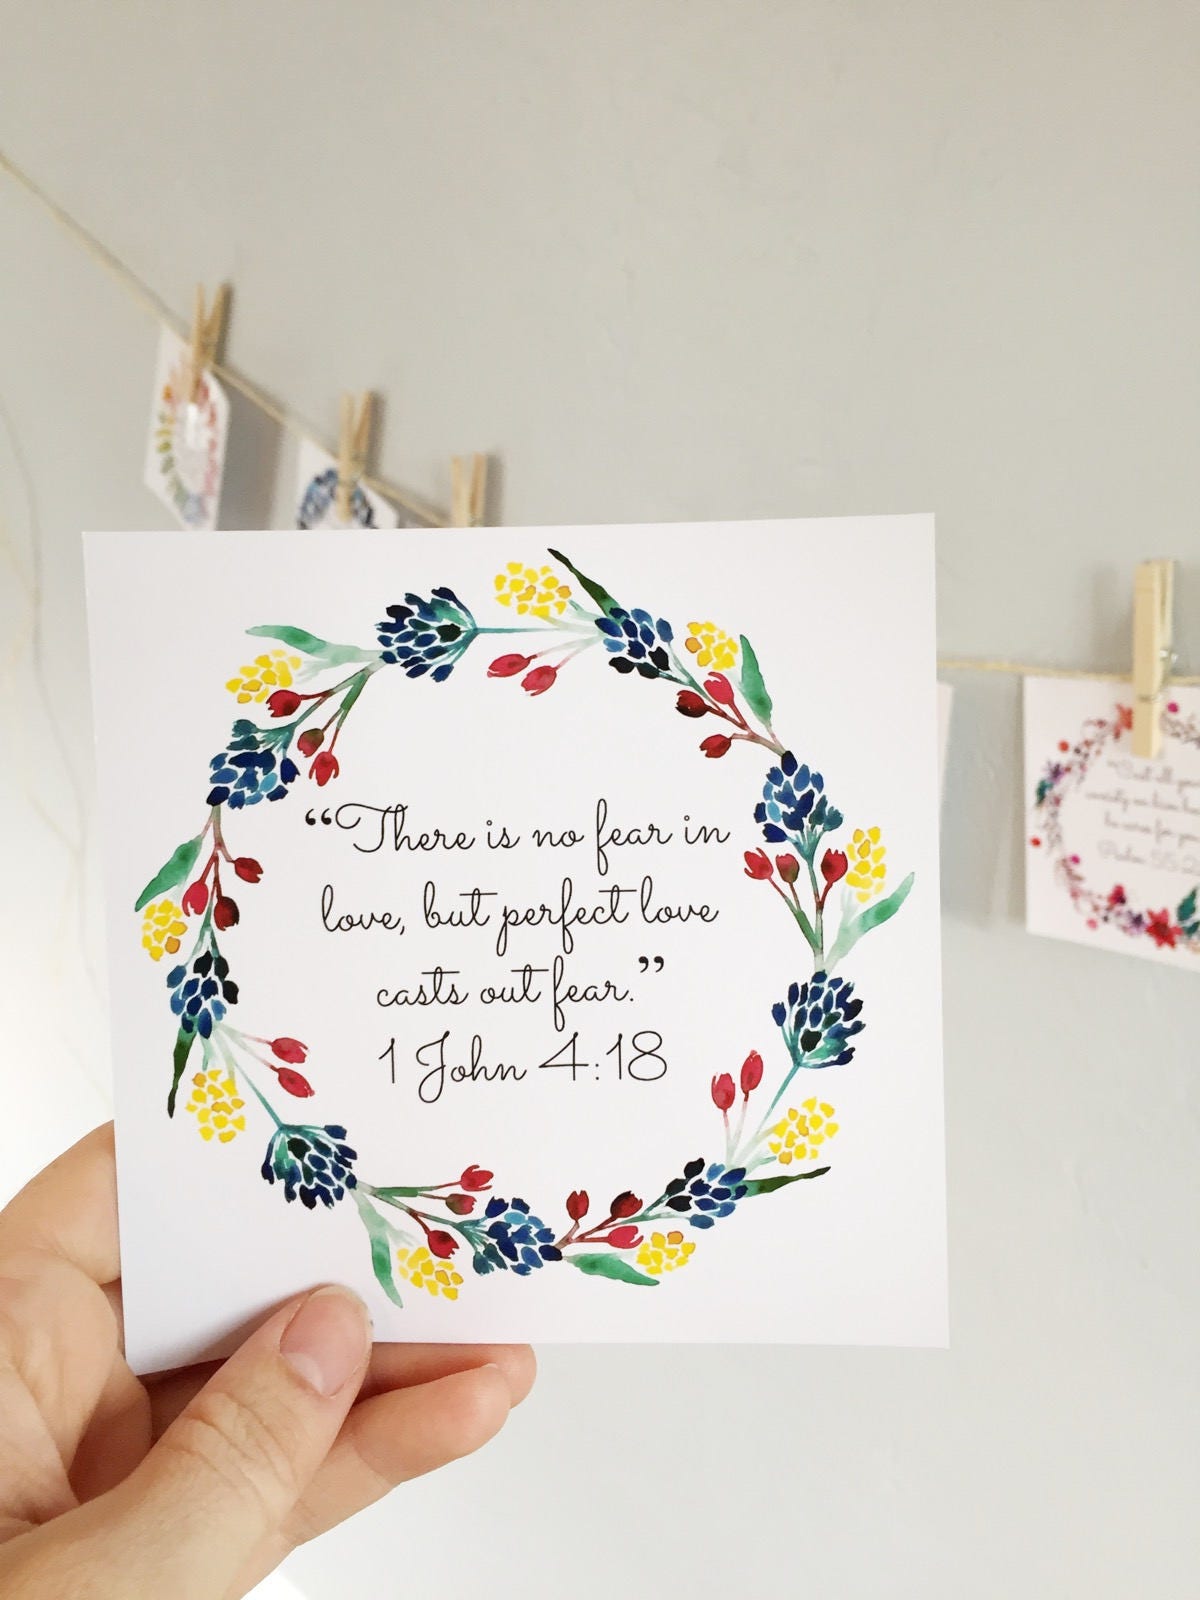 “There is no fear in
love, but perfect love
casts out fear.”
1 John 4:18
"Cast all your
anxiety on him
he cares for you
Psalm 55:2